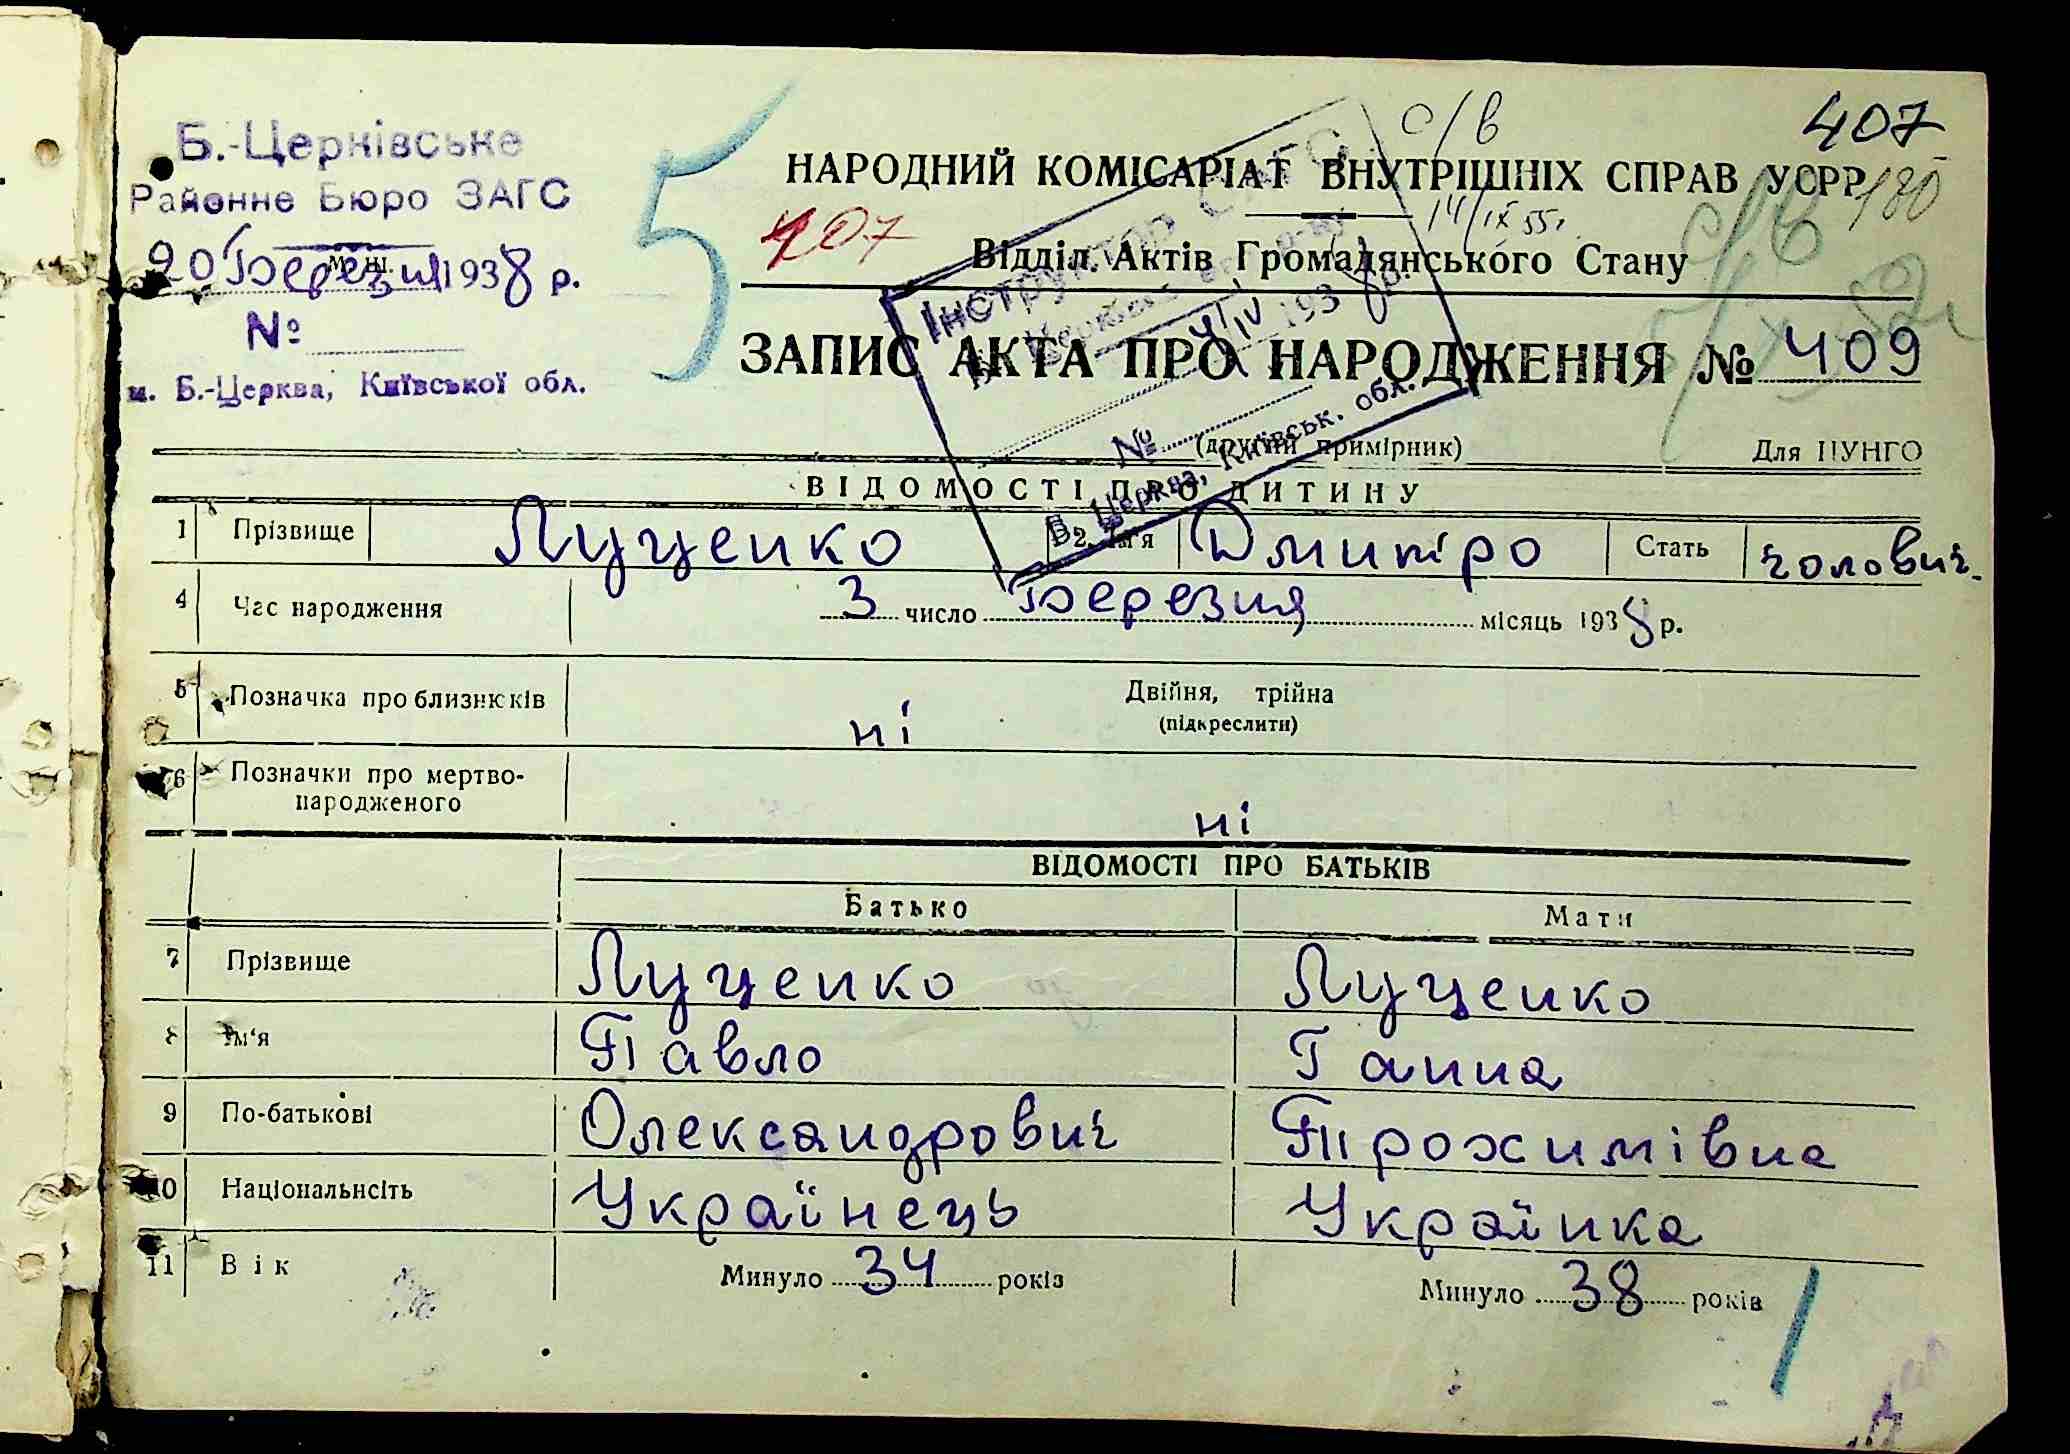 Б.-Церківське
Районне Бюро ЗАГС
20 Березня 1938 р.
№
м. Б.-Церква, Київської обл.
5
с/в
407
НАРОДНИЙ КОМІСАРІАТ ВНУТРІШНІХ СПРАВ УСРР
180
407
14/IX 55г.
Відділ Актів Громадянського Стану
с/в
Інструктор
4/IV 1938 р.
№
Б. Церква, Київськ. обл.
ЗАПИС АКТА ПРО НАРОДЖЕННЯ № 409
(другий примірник)
Для ЦУНГО
ВІДОМОСТІ ПРО ДИТИНУ
1 Прізвище Луценко 2. Ім'я Дмитро Стать чоловіч.
4 Час народження 3 число Березня місяць 1938 р.
5 Позначка про близнюків ні Двійня, трійна
(підкреслити)
6 Позначки про мертво-
народженого ні
ВІДОМОСТІ ПРО БАТЬКІВ
Батько Мати
7 Прізвище Луценко Луценко
8 Ім'я Павло Ганна
9 По-батькові Олександрович Трохимівна
10 Національність Українець Українка
11 Вік Минуло 34 років Минуло 38 років